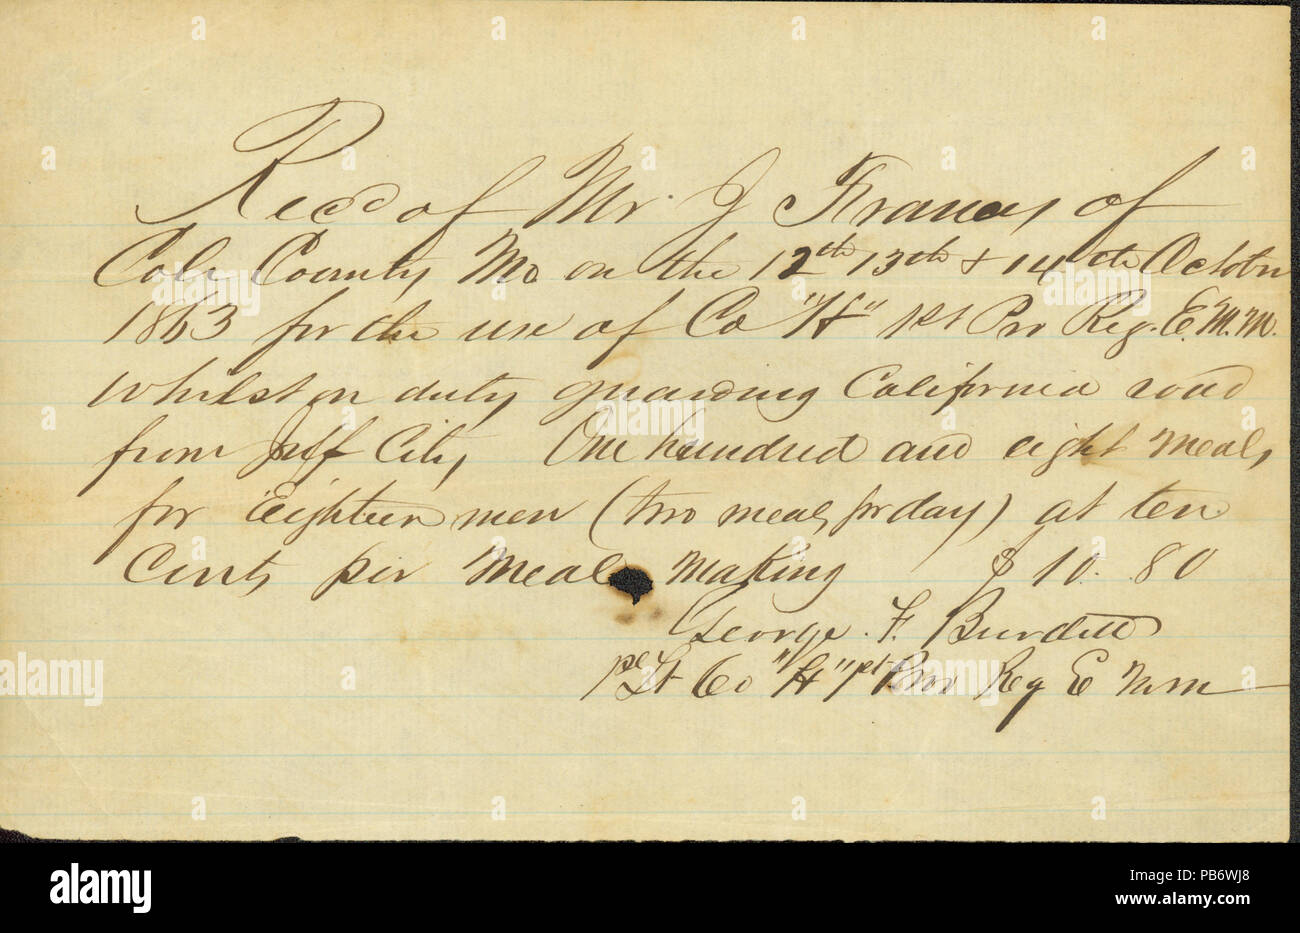 Recd of Mr. J Francis of
Cole County Mo on the 12th 13th & 14th October
1863 for the use of Co "H" 1st Pro Reg. E.M.M.
whilst on duty guarding California road
from Jeff City One hundred and eight meals
for Eighteen men (two meals pr day) at ten
Cents per Meal making $10.80
George. F. Burdett
1st Lt Co "H" 1st Pro Reg E M M
alamy
Image ID: PB6WJ8
www.alamy.com